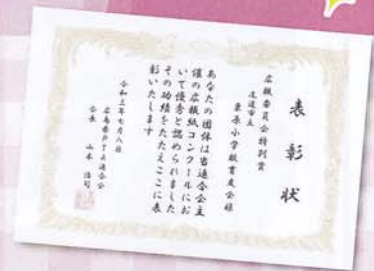 表彰状
広報委員会特別賞
尾道市立
栗原小学校育友会様
あなたの団体は当連合会主
催の広報紙コンクールにお
いて優秀と認められました
その功績をたたえここに表
彰いたします
令和三年七月八日
広島県PTA連合会
会長 山本